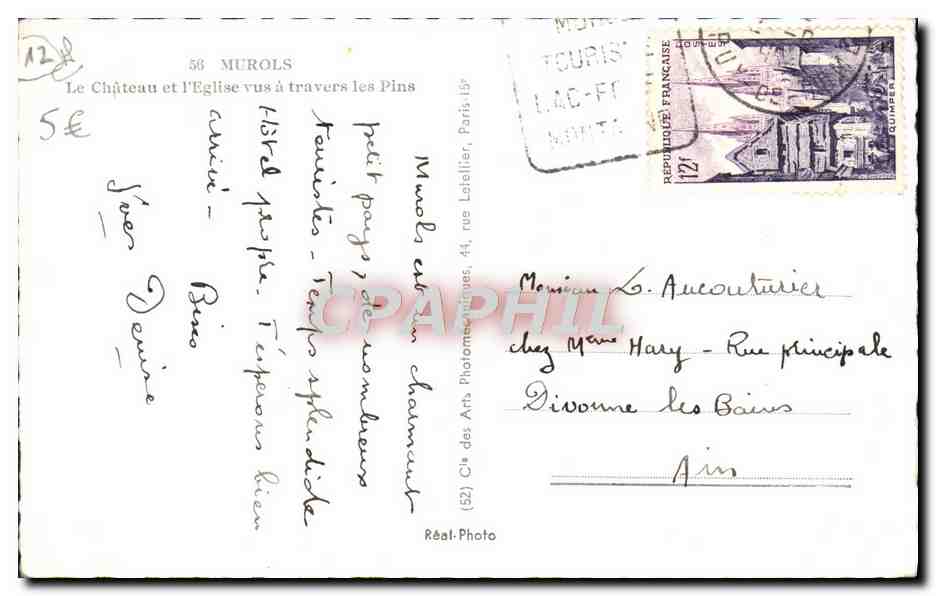 12
5€
56 MUROLS
Le Château et l'Eglise vus à travers les Pins
Murols est un charmant
petit pays, de nombreux
touristes - Temps splendide
Hôtel propre. T'espérons bien
arrivé -
Bises
Yves Denise
(52) Cie des Arts Photomécaniques, 44, rue Letellier, Paris-15e
Réal-Photo
TOURIS
LAC-FO
MONTA
RÉPUBLIQUE FRANÇAISE
POSTES
12f
QUIMPER
Monsieur L. Aucouturier
chez Mme Mary - Rue principale
Divonne les Bains
Ain
CPAPHIL